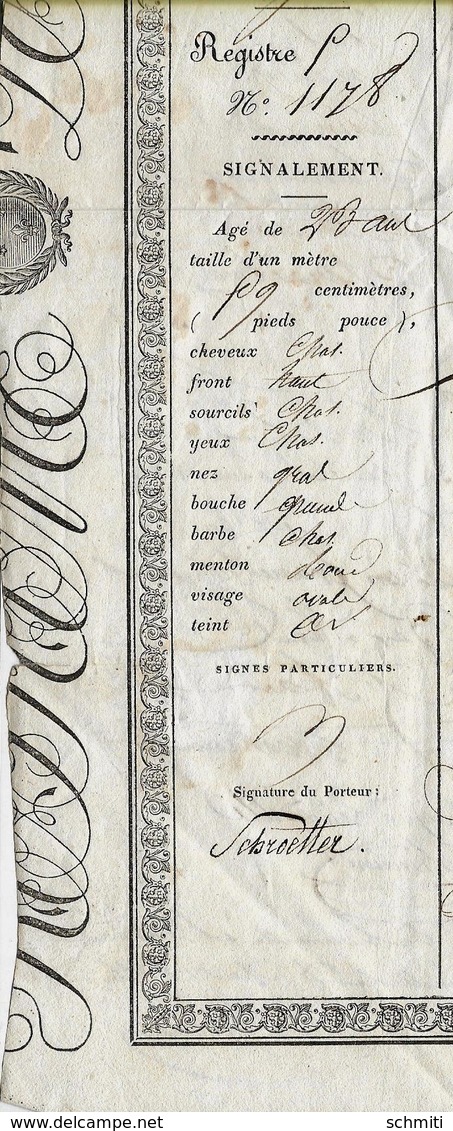 Registre P
N.º 1178
SIGNALEMENT.
Agé de 23 ans
taille d'un mètre
59 centimètres,
( pieds pouce ),
cheveux Chat.
front haut
sourcils Chat.
yeux Chat.
nez
bouche grande
barbe Chat.
menton rond
visage ovale
teint
SIGNES PARTICULIERS.
Signature du Porteur :
Schroetter.
delcampe.net
schmiti